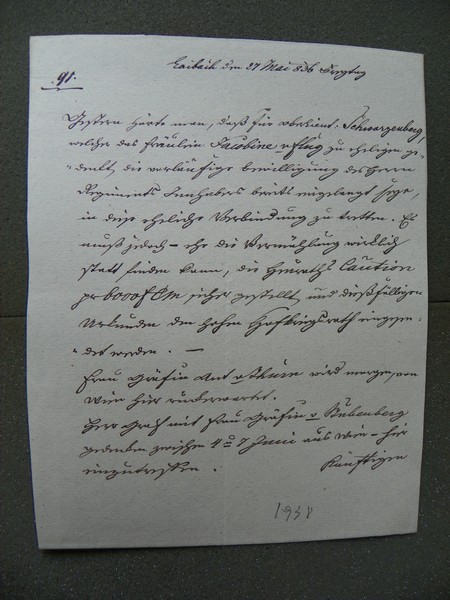 91.
Laibach den 27 Mai 836 Freytag
Gestern hörte man, daß für Oberlieut. Schwarzenberg,
welcher das Fräulein Jacobine zu eheligen ge-
denkt, die vorläufige bewilligung des Herrn
Regiments Innhabers bereits eingelangt seye,
in diese eheliche Verbindung zu tretten. Es
muß jedoch – ehe die Vermählung wirklich
statt finden kann, die Heuraths Caution
pr 6000f CM sicher gestellt, und dießfälligen
Urkunden dem hohen Hofkriegsrath eingesen-
det werden. –
Frau Gräfin Ant v Thurn wird morgen, von
Wien hier rückerwartet.
Herr Graf mit Frau Gräfin v
gedenken zwischen 4 u 7 Junii aus Wien – hier
einzutreffen.
Künftigen
1938